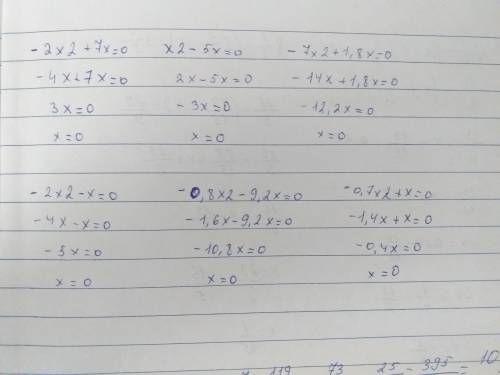 -2x2+7x=0 x2-5x=0 -7x2+1,8x=0
-4x+7x=0 2x-5x=0 -14x+1,8x=0
3x=0 -3x=0 -12,2x=0
x=0 x=0 x=0
-2x2-x=0 -0,8x2-9,2x=0 -0,7x2+x=0
-4x-x=0 -1,6x-9,2x=0 -1,4x+x=0
-3x=0 -10,8x=0 -0,4x=0
x=0 x=0 x=0
119 73 25 - 395 = 10